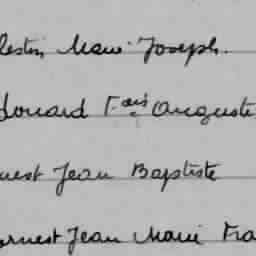 lestin Marie Joseph.
douard F.ois Auguste
nest Jean Baptiste
rnest Jean Marie Fra